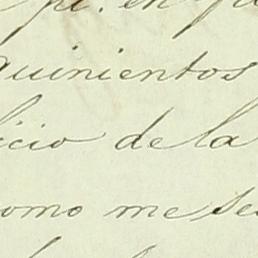 quinientos
icio de la
como me se